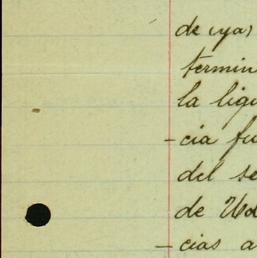 de (ya)
termin
la liqu
-cia fu
del se
de Ud
-cias a